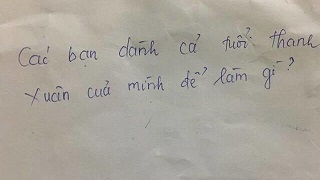 Các bạn dành cả tuổi thanh
xuân của mình để làm gì?